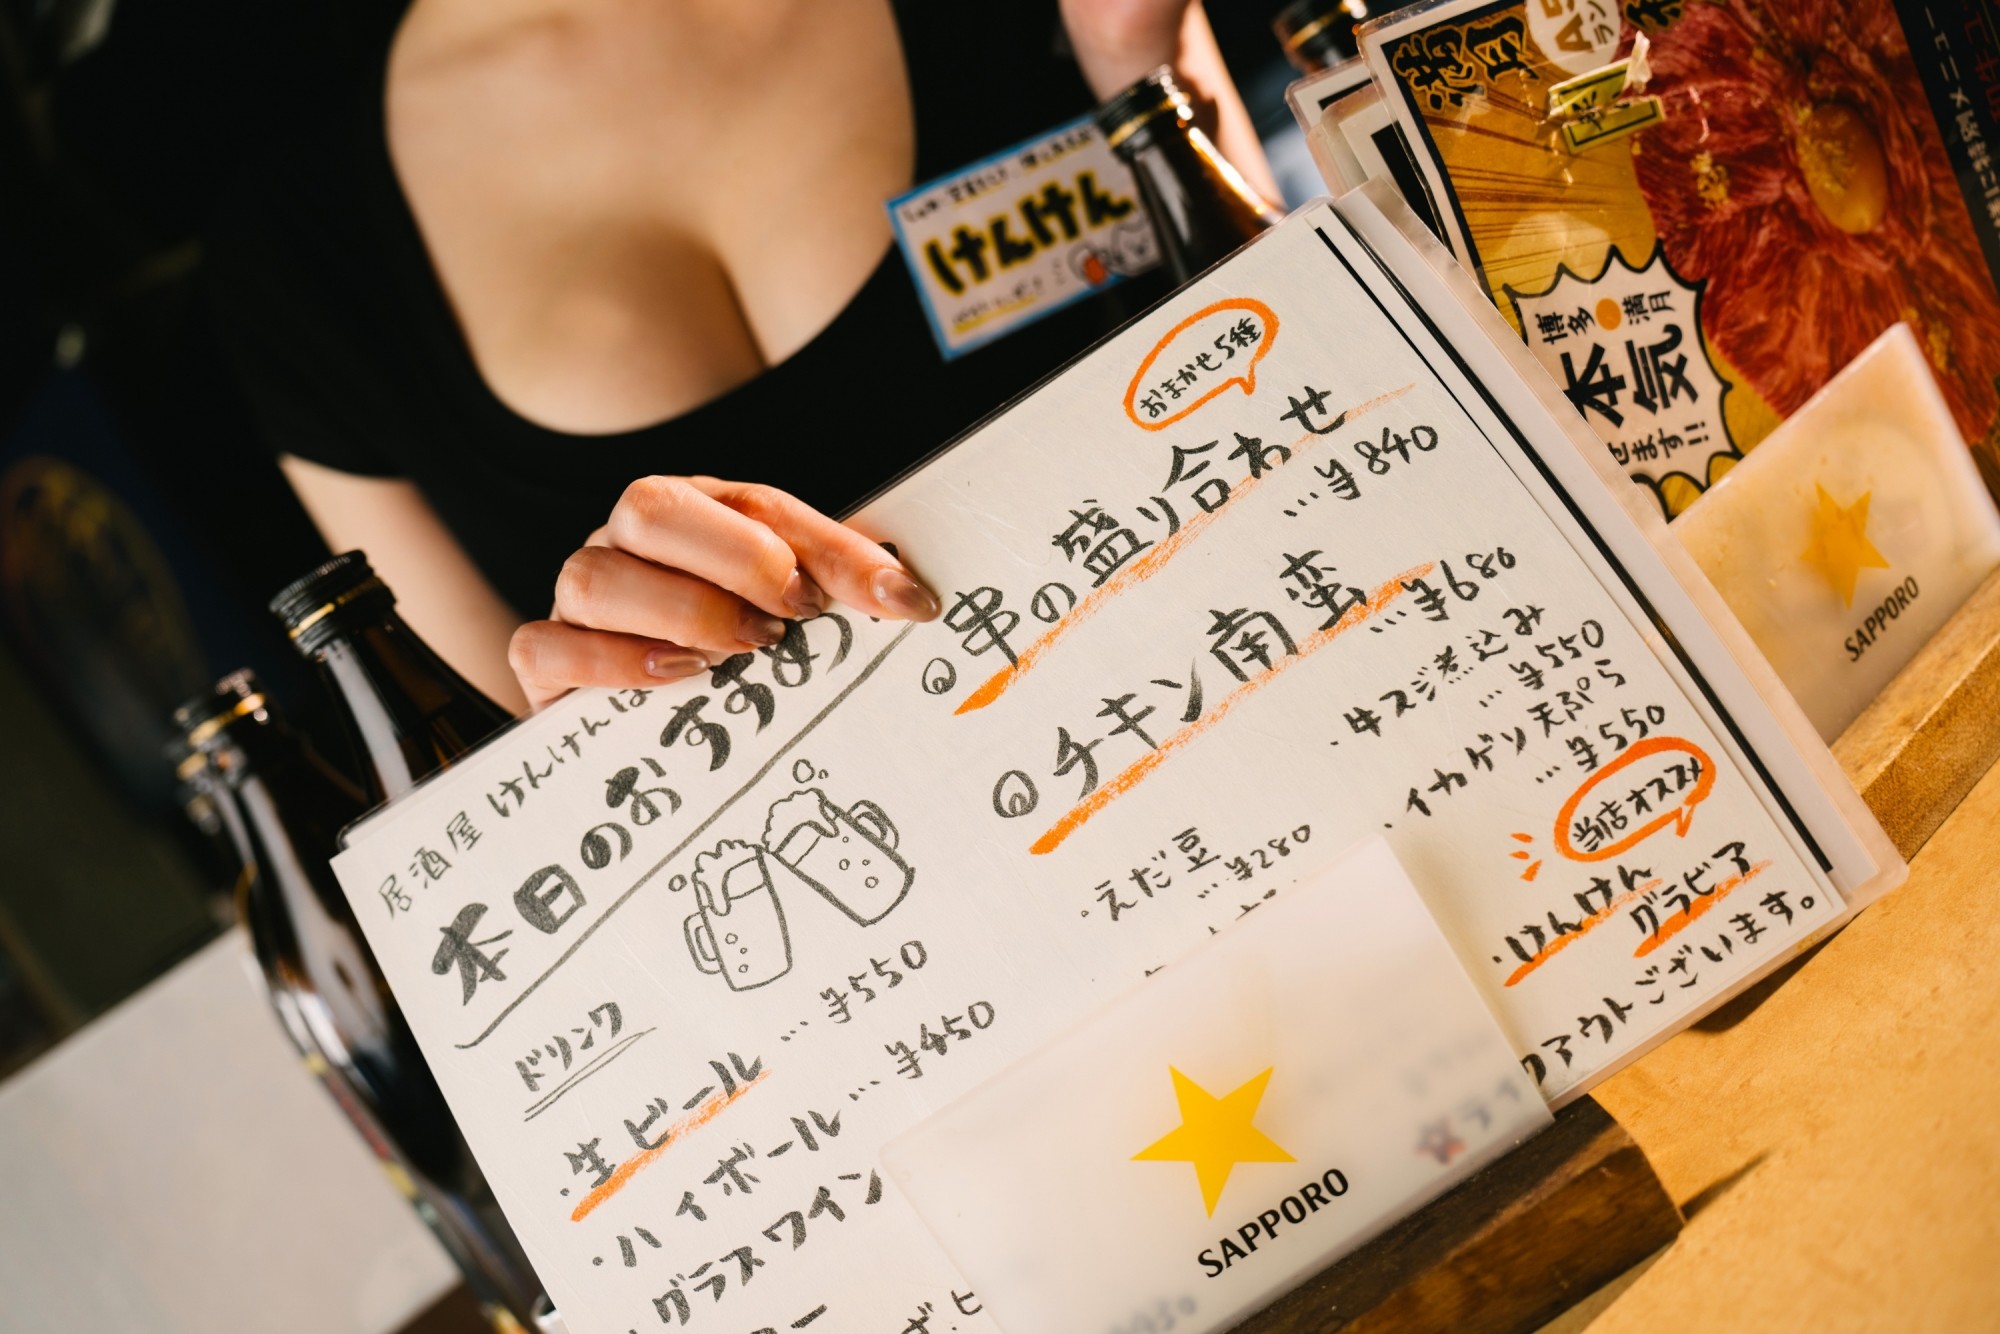 けんけん
居酒屋 けんけんは
本日のおすすめ
ドリンク
・生ビール … ¥550
・ハイボール … ¥450
グラスワイン
おまかせ5種
串の盛り合わせ
… ¥840
チキン南蛮
… ¥680
・えだ豆
… ¥280
・牛スジ煮込み
… ¥550
・イカゲソ天ぷら
… ¥550
当店オススメ
・けんけん
グラビア
クアウトございます。
SAPPORO
満月
博多 満月
本気
せます!!
SAPPORO